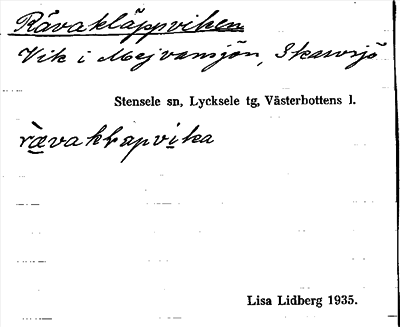 Rävakläppviken
Vik i Mejvansjön, Skarvsjö
Stensele sn, Lycksele tg, Västerbottens l.
rævakḷapvika
Lisa Lidberg 1935.